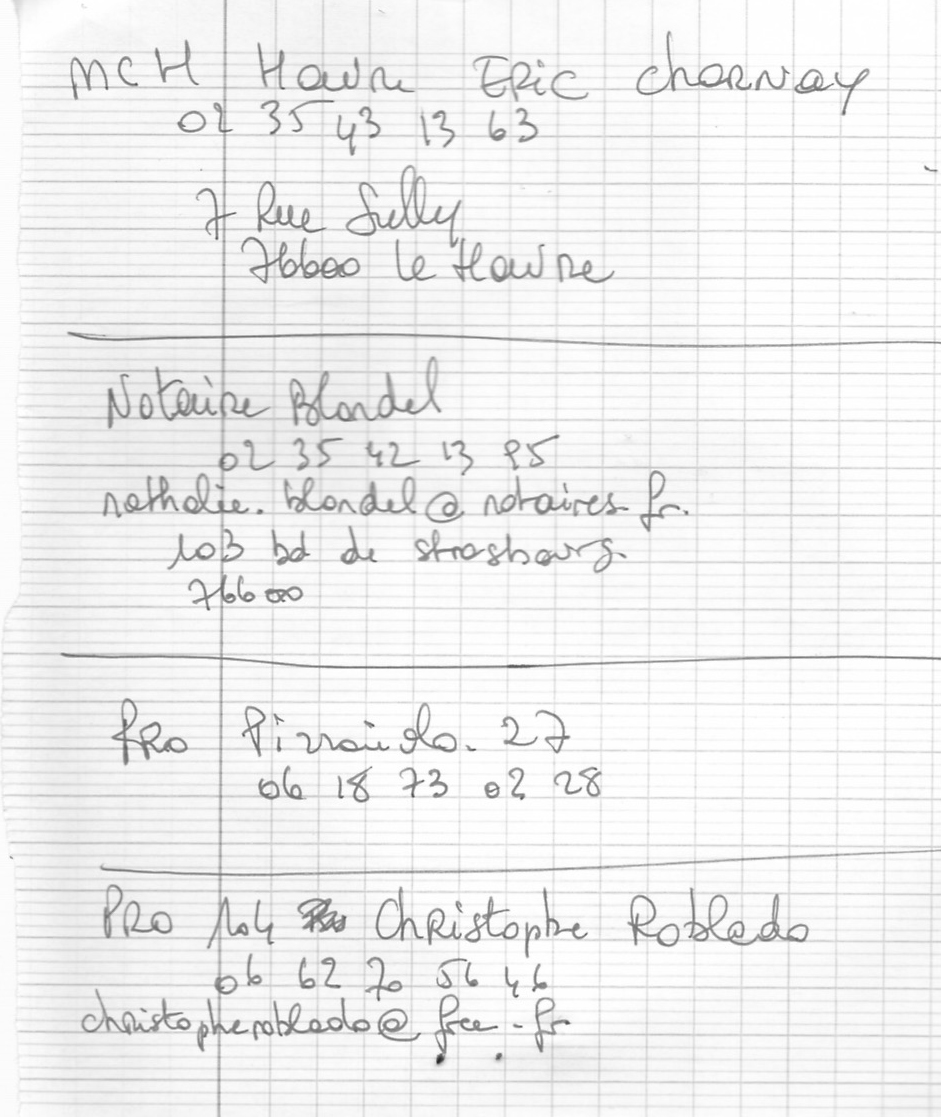 MCH Havre Eric Charnay
02 35 43 13 63
7 Rue Sully
76600 le Havre
Notaire Blondel
02 35 42 13 95
nathalie.blondel@notaires.fr.
103 bd de strasbourg.
76600
PRO 27
06 18 73 02 28
PRO 104 Christophe Robledo
06 62 70 56 46
christopherobledo@free.fr